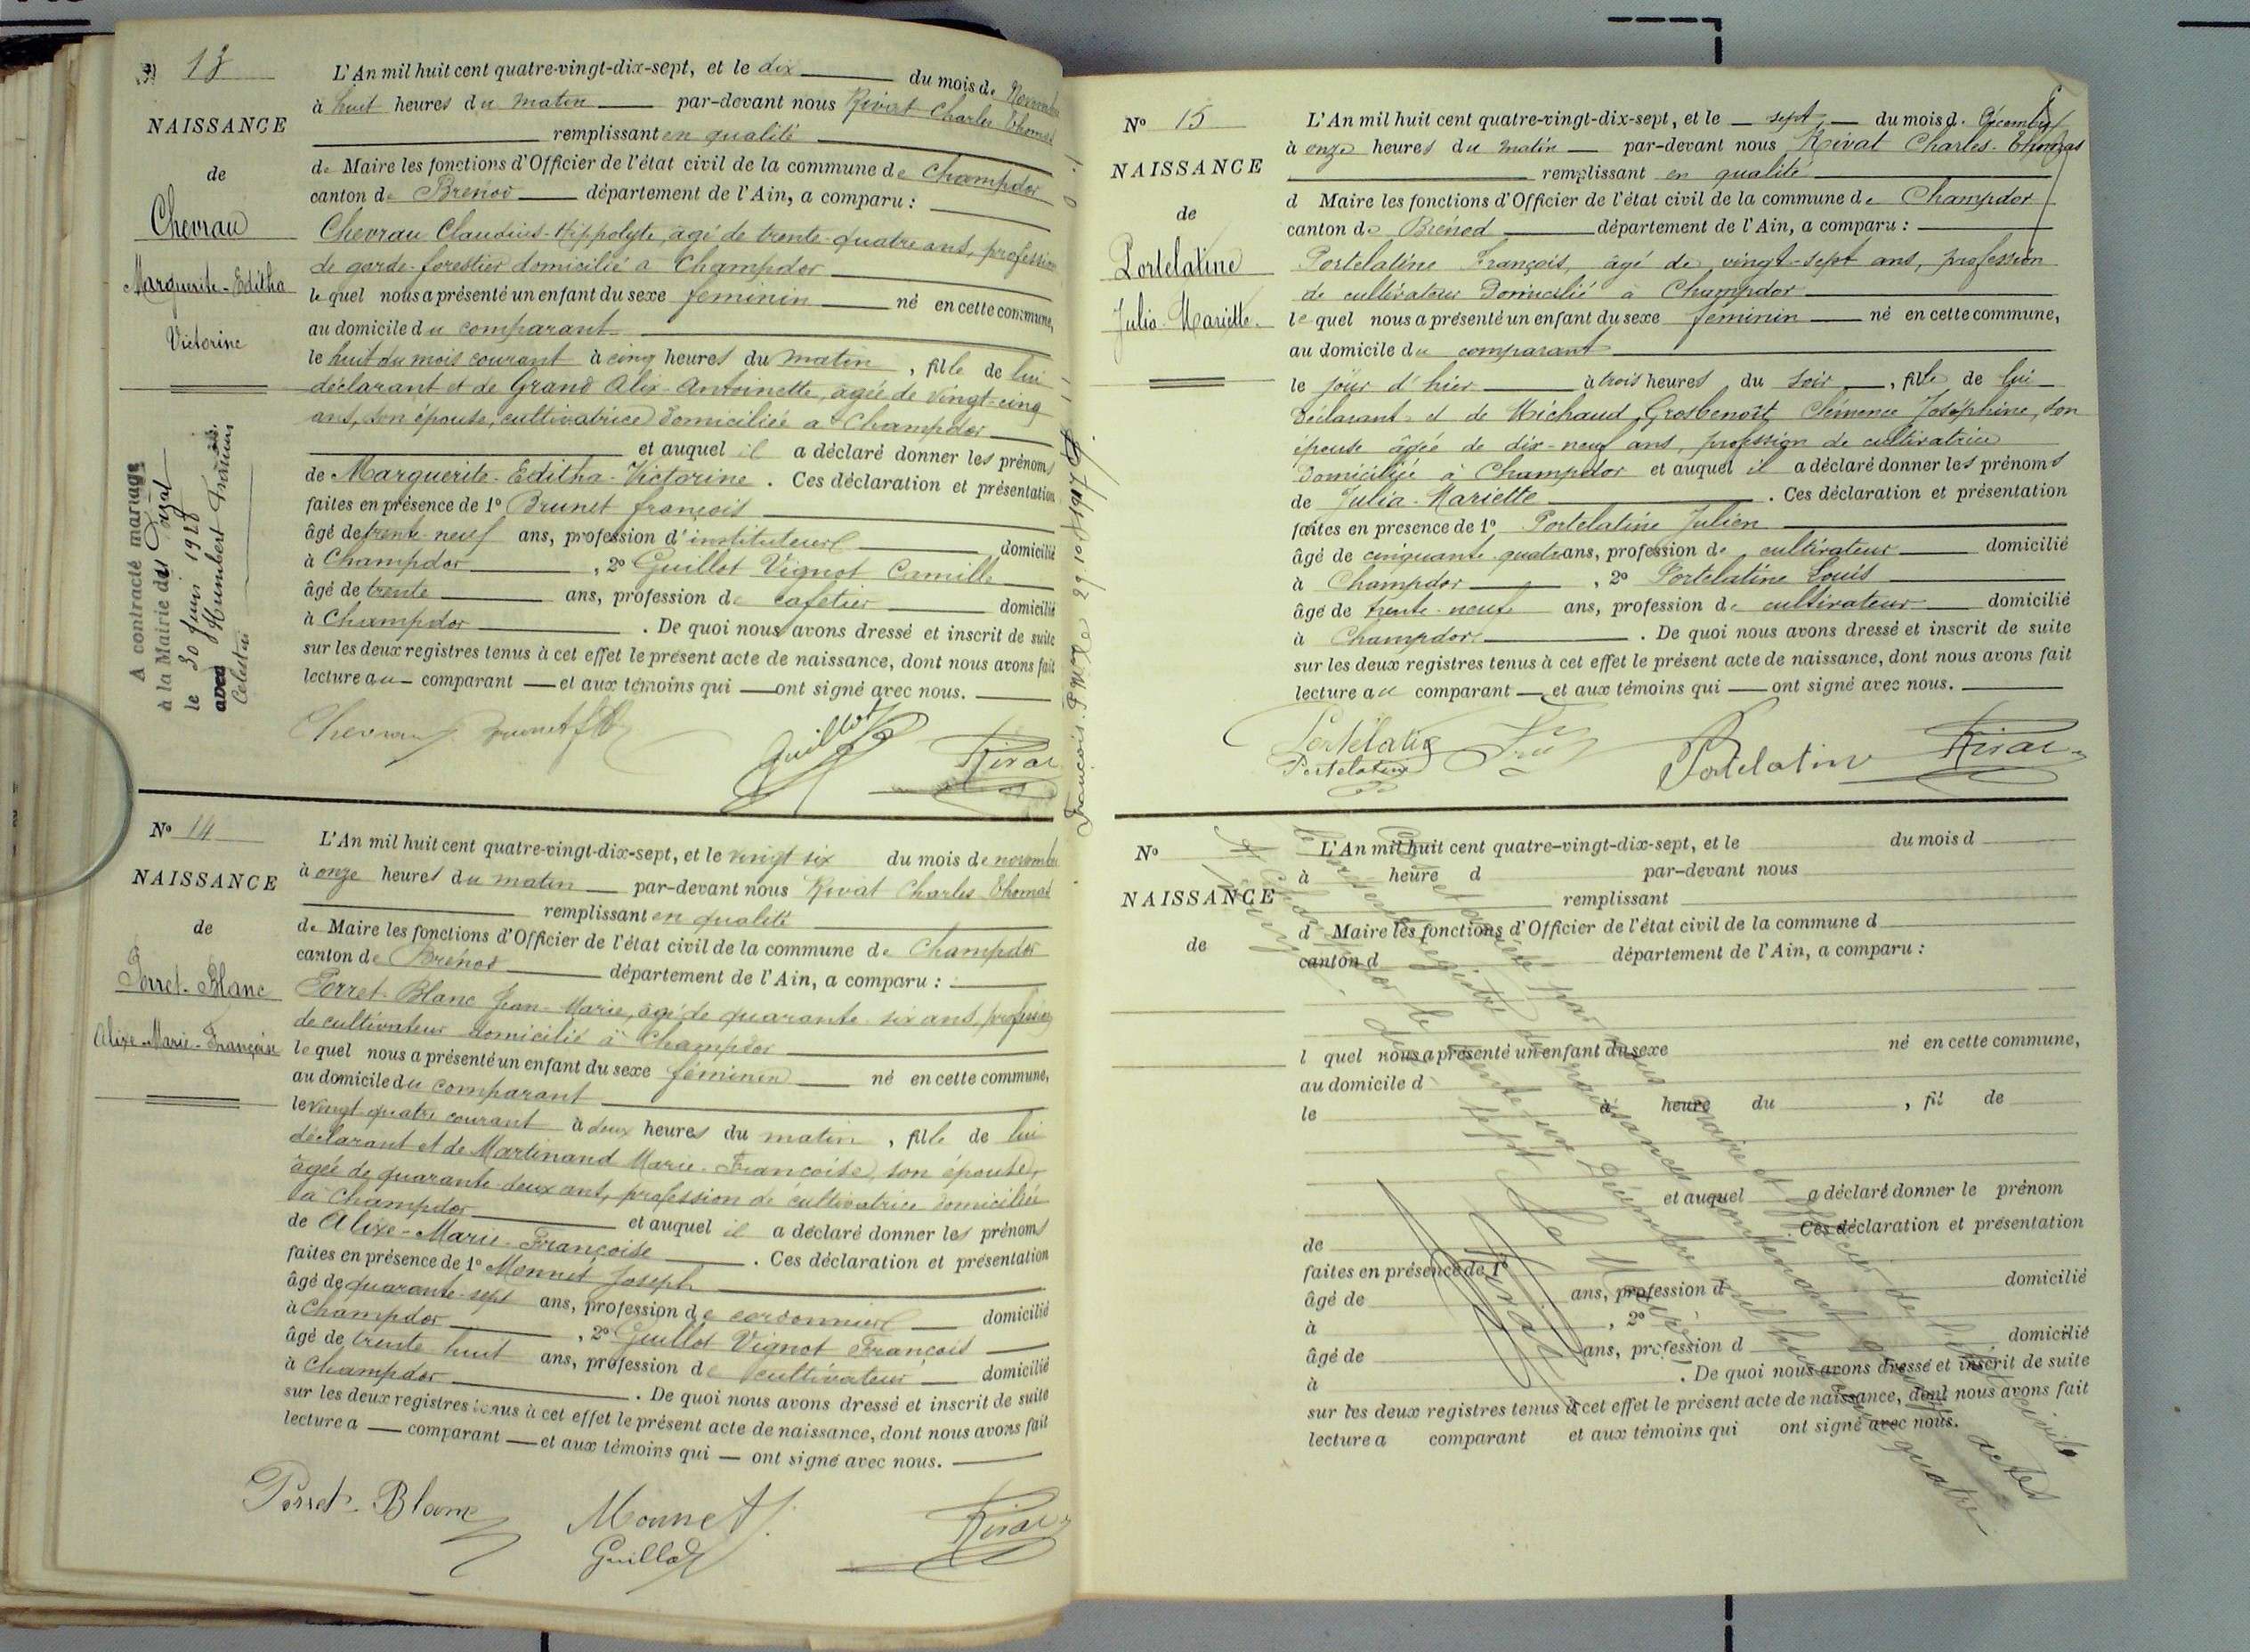 13
NAISSANCE
de
Chevrau
Marguerite-Editha
Victorine
A contracté mariage
à la Mairie de
le 30 Juin 1928
avec Humbert
Celestin
L'An mil huit cent quatre-vingt-dix-sept, et le dix du mois de Novembre
à huit heures du matin par-devant nous Rivat Charles Thomas
remplissant en qualité
de Maire les fonctions d'Officier de l'état civil de la commune de Champdor
canton de Brenod département de l'Ain, a comparu :
Chevrau Claudius-Hippolyte, âgé de trente-quatre ans, profession
de garde-forestier domicilié à Champdor
lequel nous a présenté un enfant du sexe feminin né en cette commune,
au domicile du comparant
le huit du mois courant à cinq heures du matin, fille de lui
déclarant et de Grand Alix-Antoinette, âgée de vingt-cinq
ans, son épouse, cultivatrice domiciliée à Champdor
et auquel il a déclaré donner les prénoms
de Marguerite-Editha-Victorine. Ces déclaration et présentation
faites en présence de 1° Brunet françois
âgé de trente-neuf ans, profession d'instituteur domicilié
à Champdor, 2° Guillot Vignot Camille
âgé de trente ans, profession de cafetier domicilié
à Champdor. De quoi nous avons dressé et inscrit de suite
sur les deux registres tenus à cet effet le présent acte de naissance, dont nous avons fait
lecture au comparant et aux témoins qui ont signé avec nous.
Chevrau Brunet Guillot Rivat
N° 14
NAISSANCE
de
Perret-Blanc
Alixe-Marie-Françoise
L'An mil huit cent quatre-vingt-dix-sept, et le vingt six du mois de novembre
à onze heures du matin par-devant nous Rivat Charles Thomas
remplissant en qualité
de Maire les fonctions d'Officier de l'état civil de la commune de Champdor
canton de Brénod département de l'Ain, a comparu :
Perret-Blanc Jean-Marie, âgé de quarante-six ans, profession
de cultivateur domicilié à Champdor
lequel nous a présenté un enfant du sexe féminin né en cette commune,
au domicile du comparant
le vingt-quatre courant à deux heures du matin, fille de lui
déclarant et de Martinand Marie-Françoise, son épouse,
âgée de quarante-deux ans, profession de cultivatrice domiciliée
à Champdor et auquel il a déclaré donner les prénoms
de Alixe-Marie-Françoise. Ces déclaration et présentation
faites en présence de 1° Monnet Joseph
âgé de quarante-sept ans, profession de cordonnier domicilié
à Champdor, 2° Guillot Vignot François
âgé de trente huit ans, profession de cultivateur domicilié
à Champdor. De quoi nous avons dressé et inscrit de suite
sur les deux registres tenus à cet effet le présent acte de naissance, dont nous avons fait
lecture a comparant et aux témoins qui ont signé avec nous.
Perret-Blanc Monnet J. Rivat
Guillot
N° 15
NAISSANCE
de
Portelatine
Julia-Mariette
L'An mil huit cent quatre-vingt-dix-sept, et le sept du mois d. Décembre
à onze heures du matin par-devant nous Rivat Charles-Thomas
remplissant en qualité
d Maire les fonctions d'Officier de l'état civil de la commune de Champdor
canton de Brénod département de l'Ain, a comparu :
Portelatine François, âgé de vingt-sept ans, profession
de cultivateur domicilié à Champdor
lequel nous a présenté un enfant du sexe feminin né en cette commune,
au domicile du comparant
le jour d'hier à trois heures du soir, fille de lui
déclarant et de Michaud Grosbenoît Clémence Joséphine, son
épouse âgée de dix-neuf ans, profession de cultivatrice
domiciliée à Champdor et auquel il a déclaré donner les prénoms
de Julia-Mariette. Ces déclaration et présentation
faites en présence de 1° Portelatine Julien
âgé de cinquante-quatre ans, profession de cultivateur domicilié
à Champdor, 2° Portelatine Louis
âgé de trente-neuf ans, profession de cultivateur domicilié
à Champdor. De quoi nous avons dressé et inscrit de suite
sur les deux registres tenus à cet effet le présent acte de naissance, dont nous avons fait
lecture au comparant et aux témoins qui ont signé avec nous.
Portelatine Portelatin Rivat
Portelatine
N°
NAISSANCE
de
L'An mil huit cent quatre-vingt-dix-sept, et le du mois d
à heure d par-devant nous
remplissant
d Maire les fonctions d'Officier de l'état civil de la commune d
canton d département de l'Ain, a comparu :
l quel nous a présenté un enfant du sexe né en cette commune,
au domicile d
le à heure du , fil de
et auquel a déclaré donner le prénom
de . Ces déclaration et présentation
faites en présence de 1°
âgé de ans, profession d domicilié
à , 2°
âgé de ans, profession d domicilié
à . De quoi nous avons dressé et inscrit de suite
sur les deux registres tenus à cet effet le présent acte de naissance, dont nous avons fait
lecture a comparant et aux témoins qui ont signé avec nous.
Clos et arrêté par nous maire et officier de l'état civil
le présent registre de naissances contenant quinze actes
A Champdor le trente un Décembre mil huit cent quatre
vingt dix sept
Le Maire
Rivat